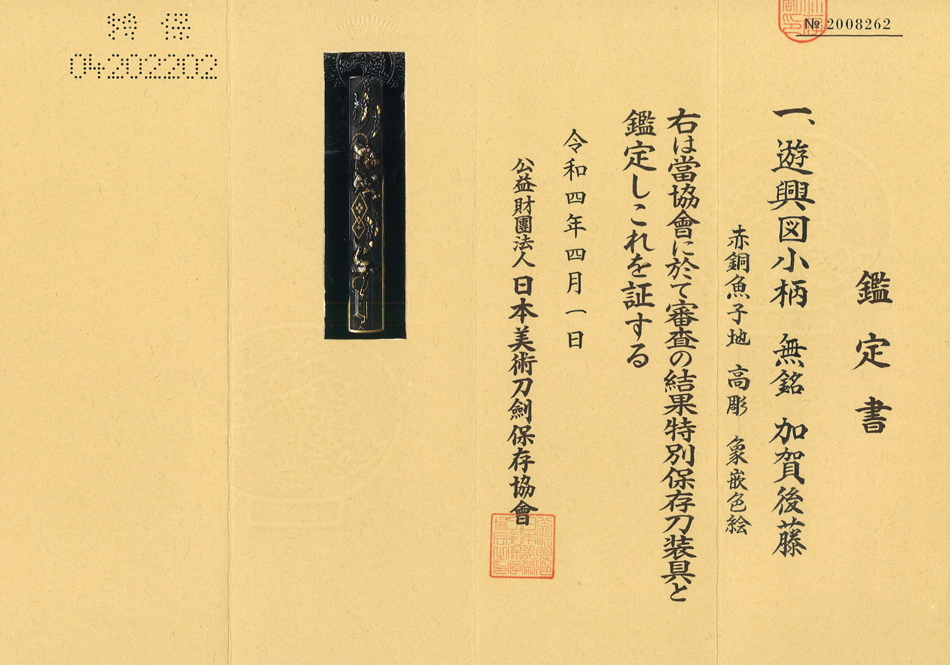 № 2008262
鑑定書
一、遊興図小柄 無銘 加賀後藤
赤銅魚子地 高彫 象嵌色絵
右は當協會に於て審査の結果特別保存刀装具と
鑑定しこれを証する
令和四年四月一日
公益財團法人 日本美術刀劍保存協會
特保
04202202